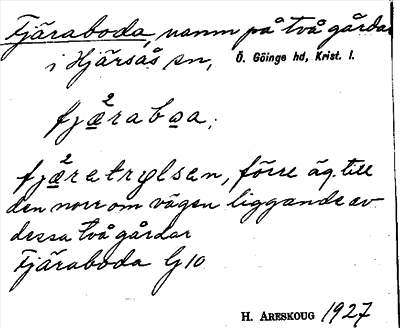 Fjäraboda, namn på två gårdar
i Hjärsås sn, Ö. Göinge hd, Krist. l.
fjæ²raboa;
fjæ²retrylsen, förre äg. till
den norr om vägen liggande av
dessa två gårdar
Fjäraboda G10
H. ARESKOUG 1927